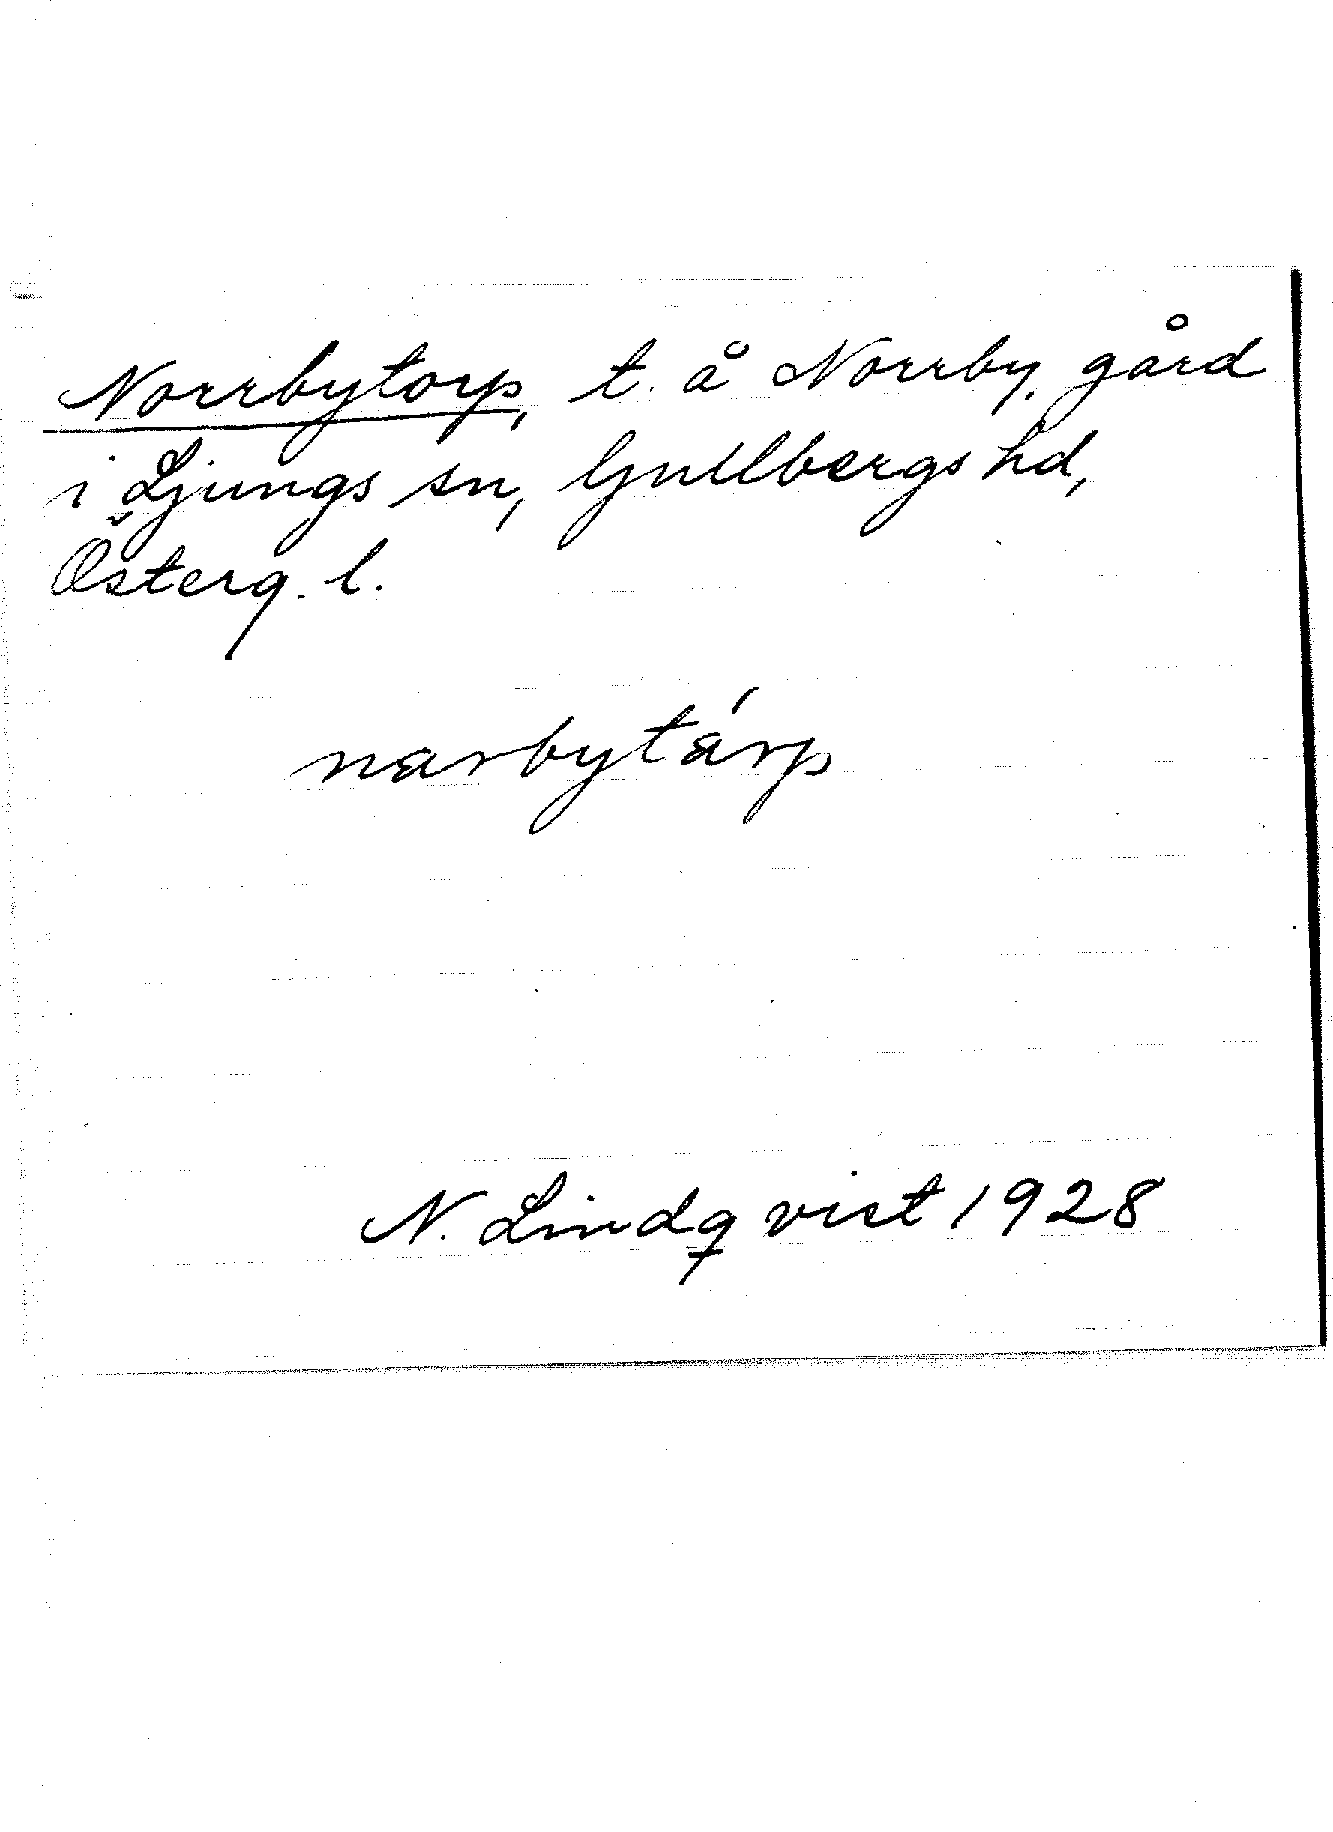 Norrbytorp, t. å Norrby, gård
i Ljungs sn, Gullbergs hd,
Österg. l.
narbytárp
N. Lindqvist 1928